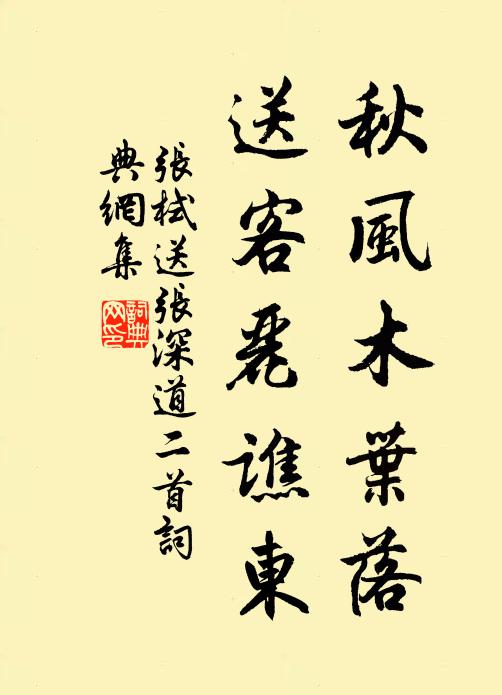 秋風木葉落
送客麗譙東
張栻送張深道二首詞
典網集
詞典
网印